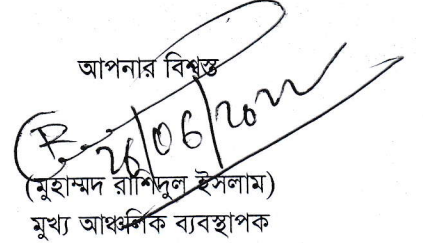 আপনার বিশ্বস্ত
26/06/2022
(মুহাম্মদ রাশিদুল ইসলাম)
মুখ্য আঞ্চলিক ব্যবস্থাপক